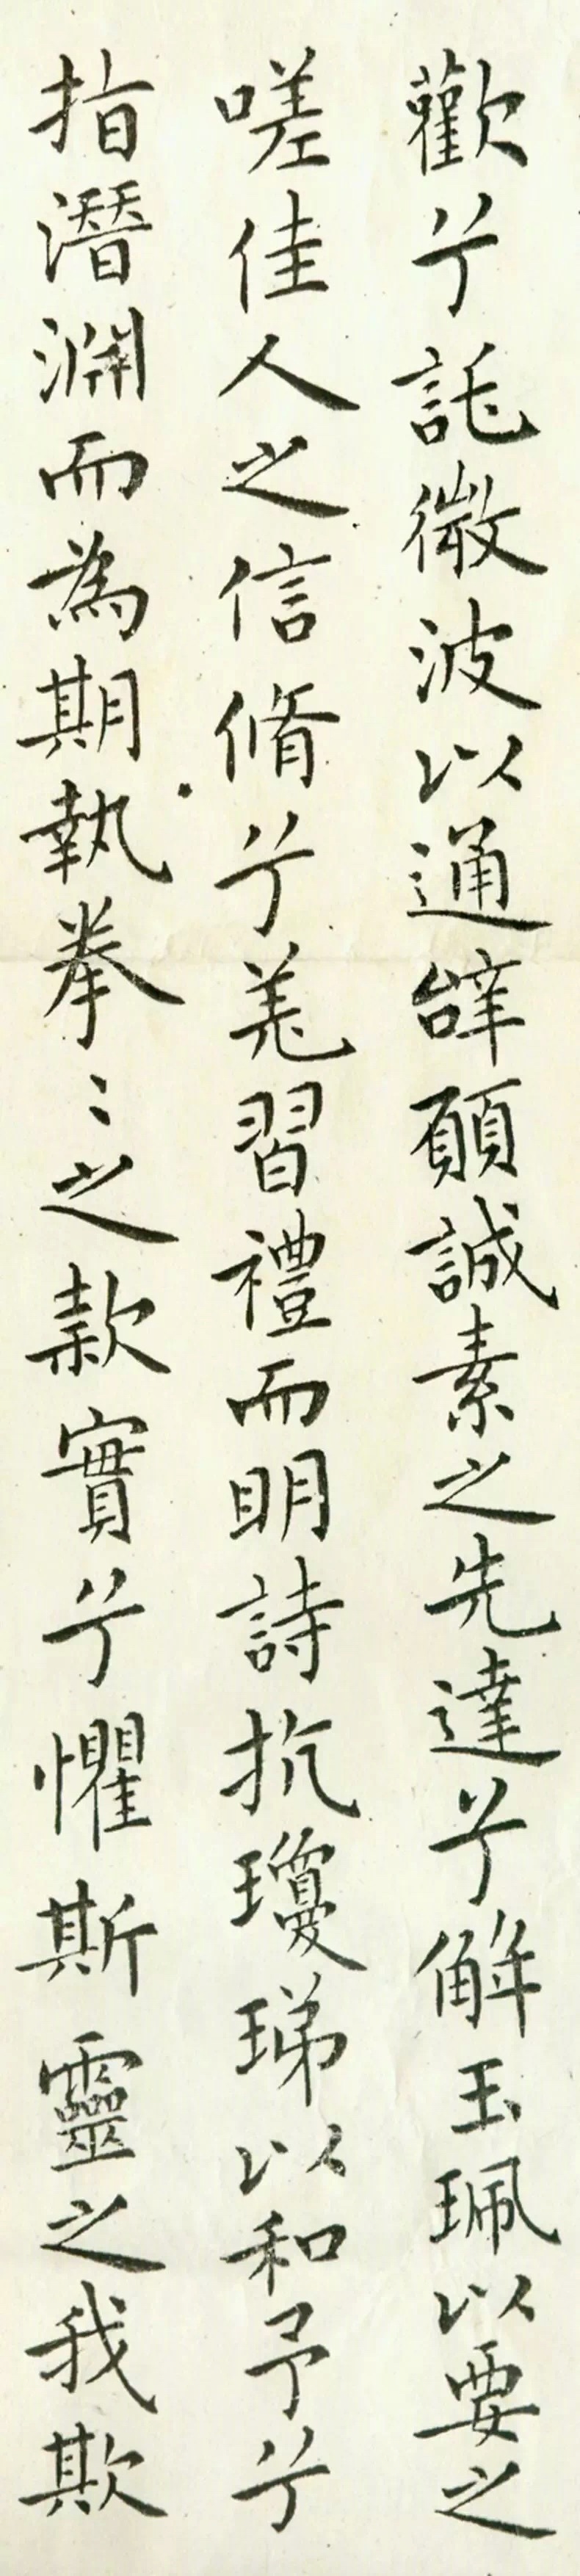 歡兮託微波以通辝願誠素之先達兮解玉珮以要之
嗟佳人之信脩兮羌習禮而明詩抗瓊珶以和予兮
指潛淵而為期執拳〻之款實兮懼斯靈之我欺